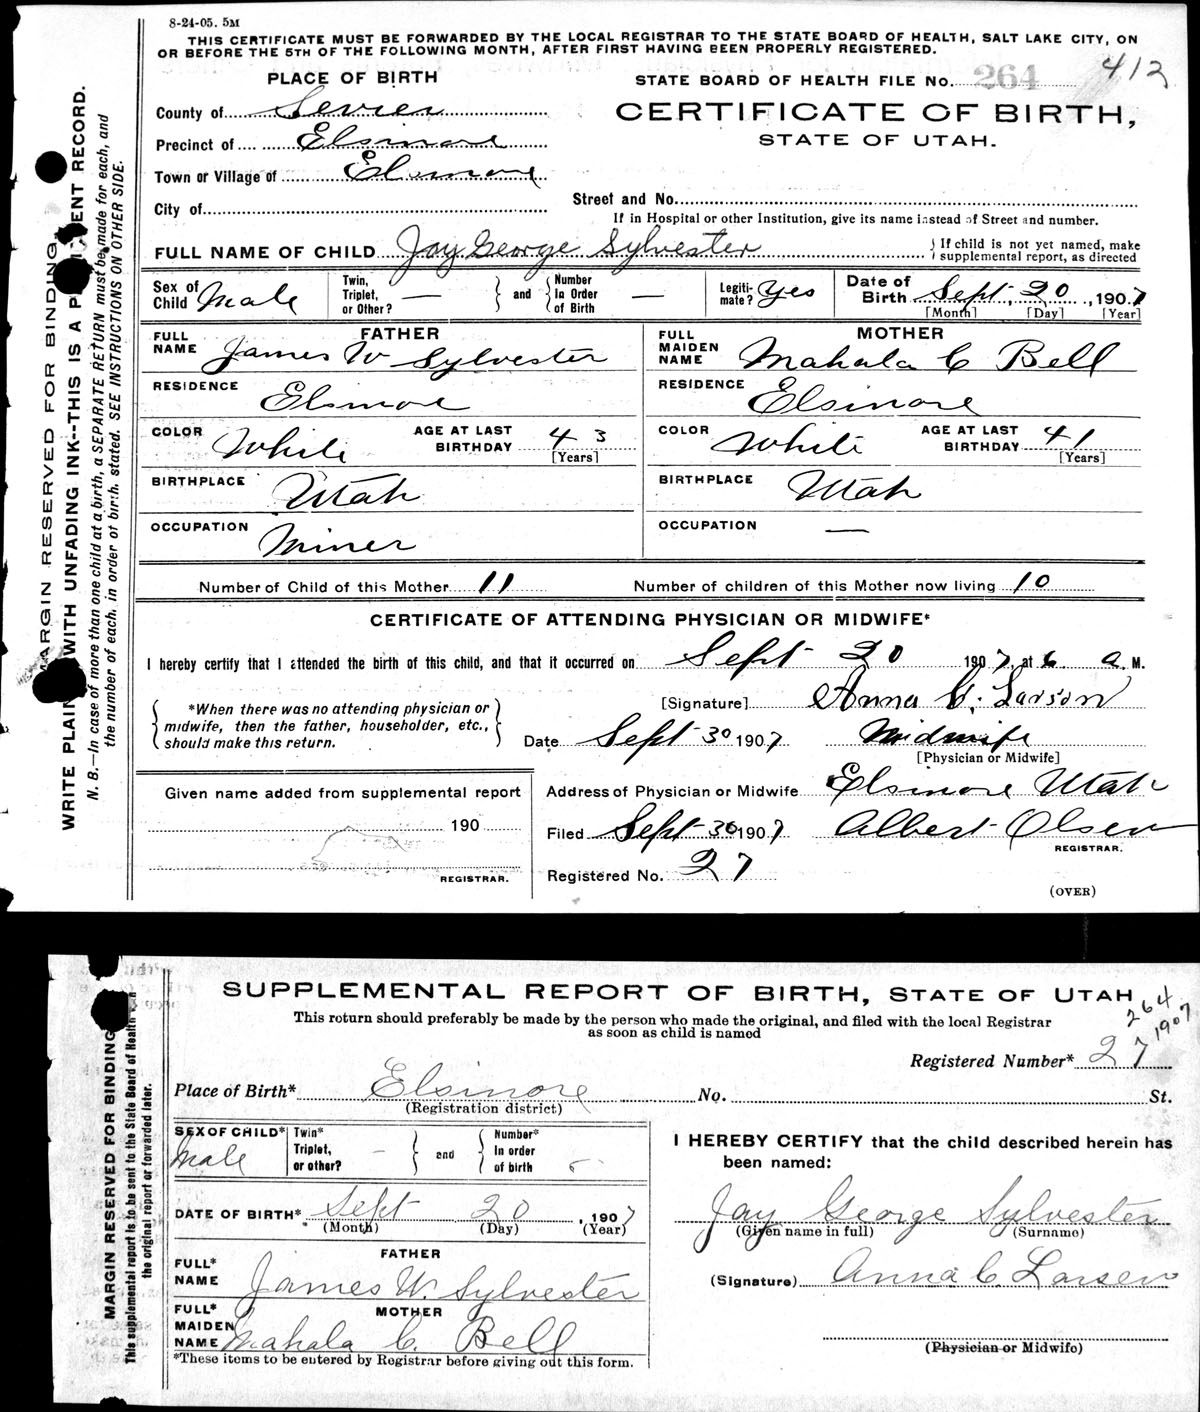 8-24-05. 5M
THIS CERTIFICATE MUST BE FORWARDED BY THE LOCAL REGISTRAR TO THE STATE BOARD OF HEALTH, SALT LAKE CITY, ON
OR BEFORE THE 5TH OF THE FOLLOWING MONTH, AFTER FIRST HAVING BEEN PROPERLY REGISTERED.
PLACE OF BIRTH
STATE BOARD OF HEALTH FILE No. 264 412
County of Sevier
CERTIFICATE OF BIRTH,
STATE OF UTAH.
Precinct of Elsinore
Town or Village of Elsinore
City of
Street and No.
If in Hospital or other Institution, give its name instead of Street and number.
FULL NAME OF CHILD Jay George Sylvester
If child is not yet named, make
supplemental report, as directed
Sex of Child Male
Twin, Triplet, or Other? —
and
Number In Order of Birth —
Legiti-mate? Yes
Date of Birth Sept. 20, 1907
[Month] [Day] [Year]
FATHER
FULL NAME James W Sylvester
RESIDENCE Elsinore
COLOR White
AGE AT LAST BIRTHDAY 43
[Years]
BIRTHPLACE Utah
OCCUPATION Miner
MOTHER
FULL MAIDEN NAME Mahala C Bell
RESIDENCE Elsinore
COLOR White
AGE AT LAST BIRTHDAY 41
[Years]
BIRTHPLACE Utah
OCCUPATION —
Number of Child of this Mother 11
Number of children of this Mother now living 10
CERTIFICATE OF ATTENDING PHYSICIAN OR MIDWIFE*
I hereby certify that I attended the birth of this child, and that it occurred on Sept 20 1907, at 6 a. M.
*When there was no attending physician or
midwife, then the father, householder, etc.,
should make this return.
[Signature] Anna C. Larson
Date Sept 30 1907 Midwife
[Physician or Midwife]
Given name added from supplemental report
190
REGISTRAR.
Address of Physician or Midwife Elsinore Utah
Filed Sept 30 1907 Albert Olsen
REGISTRAR.
Registered No. 27
(OVER)
MARGIN RESERVED FOR BINDING
WRITE PLAIN WITH UNFADING INK--THIS IS A P ENT RECORD.
N. B.—In case of more than one child at a birth, a SEPARATE RETURN must be made for each, and
the number of each, in order of birth, stated. SEE INSTRUCTIONS ON OTHER SIDE.
SUPPLEMENTAL REPORT OF BIRTH, STATE OF UTAH
264
1907
This return should preferably be made by the person who made the original, and filed with the local Registrar
as soon as child is named
Registered Number* 27
Place of Birth* Elsinore No. St.
(Registration district)
SEX OF CHILD* Male
Twin* Triplet, or other? -
and
Number* In order of birth
DATE OF BIRTH* Sept 20, 1907
(Month) (Day) (Year)
FATHER
FULL* NAME James W. Sylvester
MOTHER
FULL* MAIDEN NAME Mahala C. Bell
*These items to be entered by Registrar before giving out this form.
I HEREBY CERTIFY that the child described herein has
been named:
Jay George Sylvester
(Given name in full) (Surname)
(Signature) Anna C. Larsen
(Physician or Midwife)
MARGIN RESERVED FOR BINDING
This supplemental report is to be sent to the State Board of Health
the original report or forwarded later.